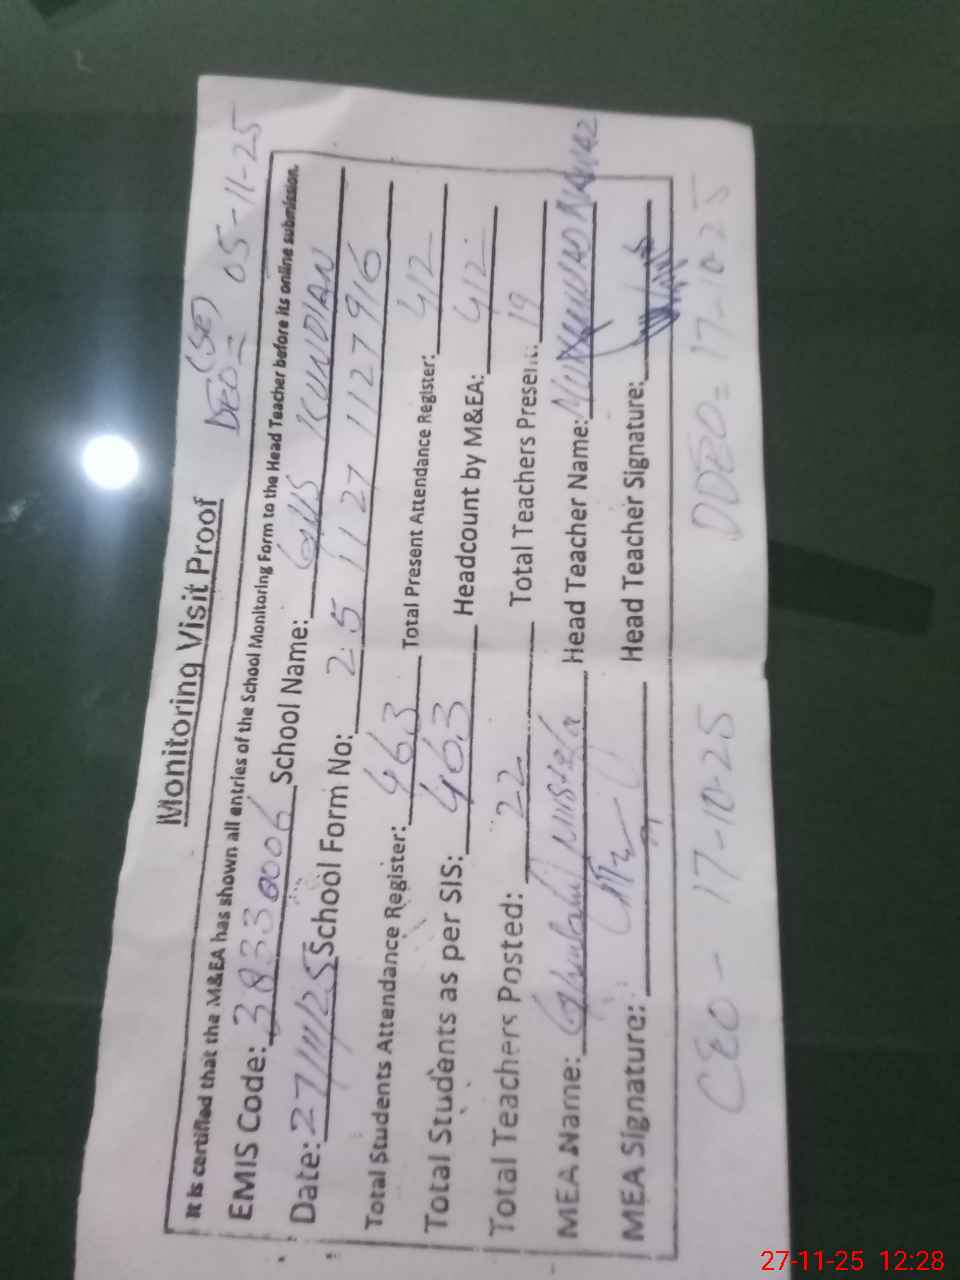 Monitoring Visit Proof
(SE)
DEO = 05-11-25
It is certified that the M&EA has shown all entries of the School Monitoring Form to the Head Teacher before its online submission.
EMIS Code: 38330006 School Name: GHS KUNDIAN
Date: 27/11/25 School Form No: 2511271127916
Total Students Attendance Register: 463 Total Present Attendance Register: 412
Total Students as per SIS: 463 Headcount by M&EA: 412
Total Teachers Posted: 22 Total Teachers Present: 19
MEA Name: Ghulam Mustafa Head Teacher Name: MUHAMMAD NAWAZ
MEA Signature: Head Teacher Signature:
CEO - 17-10-25 DDEO = 17-10-25
27-11-25 12:28